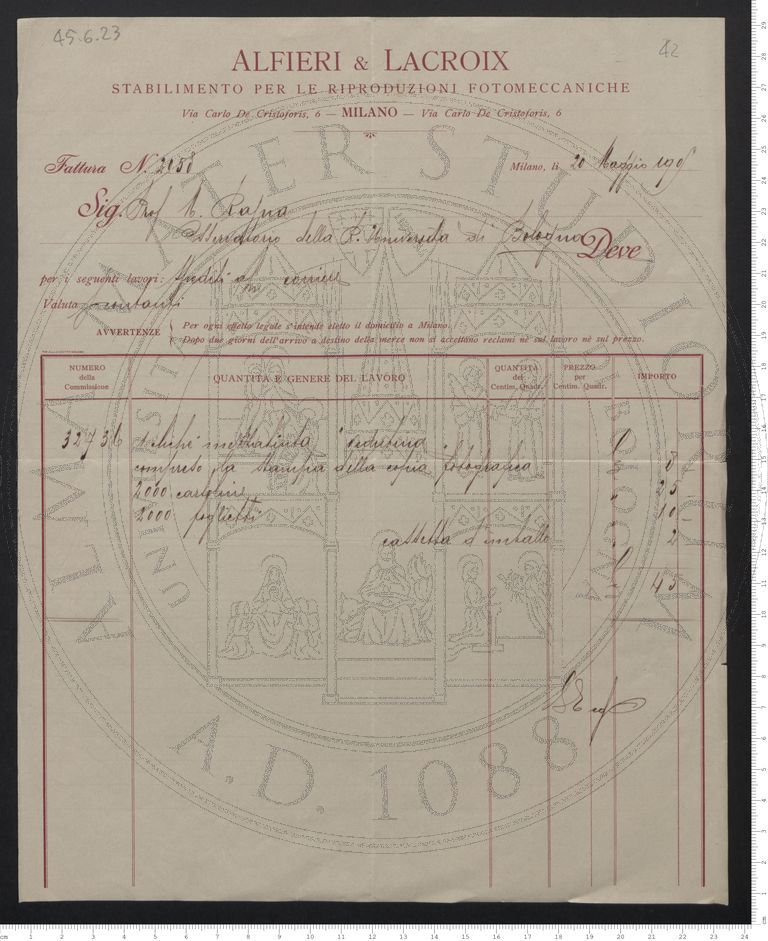 45.6.23
42
ALFIERI & LACROIX
STABILIMENTO PER LE RIPRODUZIONI FOTOMECCANICHE
Via Carlo De Cristoforis, 6 — MILANO — Via Carlo De Cristoforis, 6
Fattura N. 2158
Milano, li 20 Maggio 190
Sig. Prof M. Rajna
Osservatorio della R. Università di Bologna Deve
per i seguenti lavori: Spediti a/m corriere
Valuta contanti
AVVERTENZE
Per ogni effetto legale s'intende eletto il domicilio a Milano.
Dopo due giorni dell'arrivo a destino della merce non si accettano reclami nè sul lavoro nè sul prezzo.
NUMERO della Commissione
QUANTITÀ E GENERE DEL LAVORO
QUANTITÀ dei Centim. Quadr.
PREZZO per Centim. Quadr.
IMPORTO
32736 1 clichè mezzatinta
compreso la stampa della copia fotografica 8
2000 cartoline " 25
2000 foglietti " 10
cassetta d'imballo " 2
45
ALMA MATER STUDIORUM
UNIVERSITÀ DI BOLOGNA
A.D. 1088